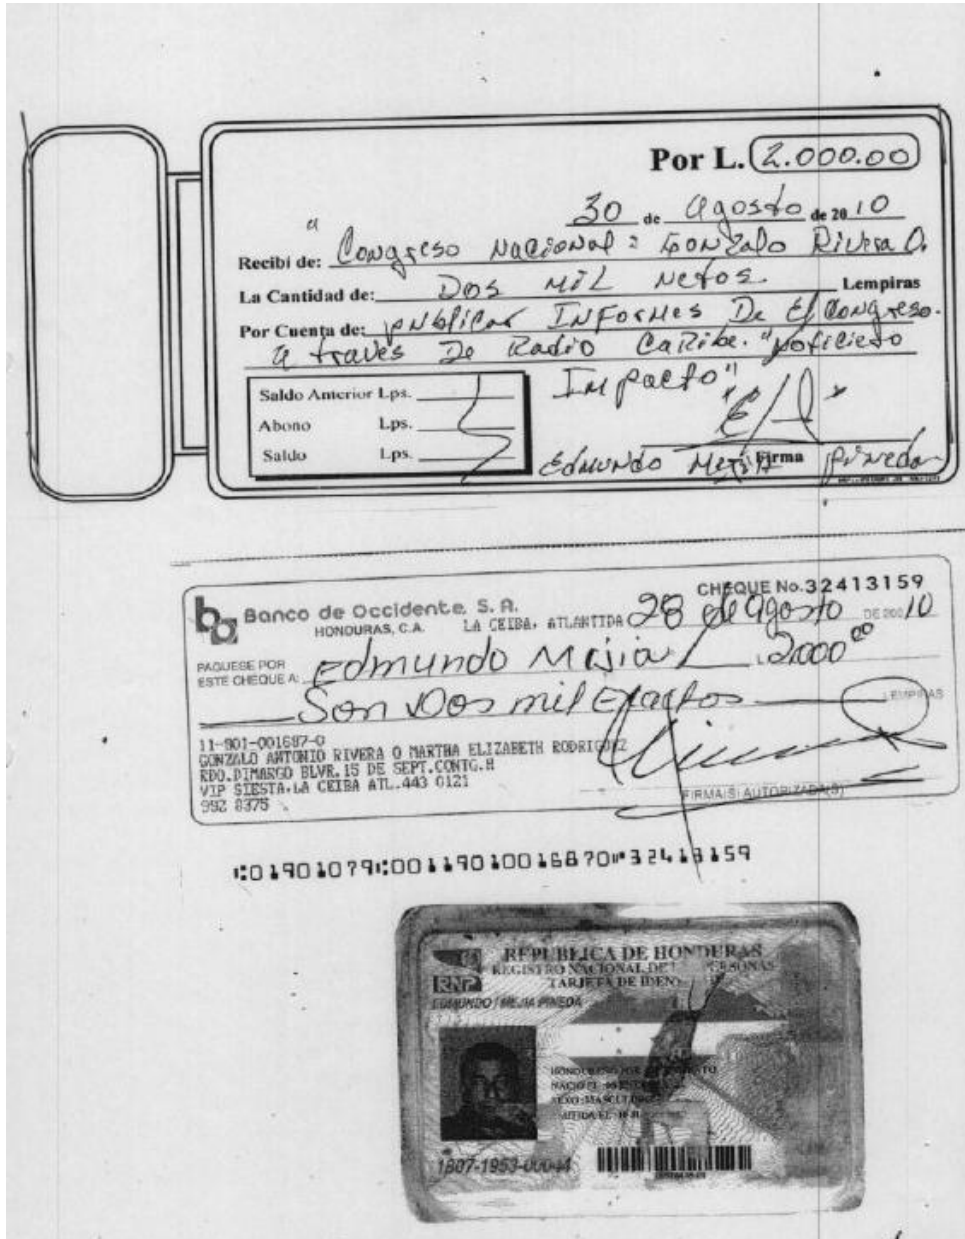 Por L. 2.000.00
30 de Agosto de 2010
Recibí de: Congreso Nacional = Gonzalo Rivera O.
La Cantidad de: Dos Mil Netos. Lempiras
Por Cuenta de: publicar Informes De El Congreso.
a través De Radio Caribe. "Noticiero
Impacto"
Saldo Anterior Lps.
Abono Lps.
Saldo Lps.
Firma
Edmundo Mejía Pineda
CHEQUE No. 32413159
Banco de Occidente, S. A.
HONDURAS, C.A. LA CEIBA, ATLANTIDA 28 de agosto DE 200 10
PAGUESE POR
ESTE CHEQUE A: Edmundo Mejia L 2000 00
Son Dos mil Exactos LEMPIRAS
11-901-001687-0
GONZALO ANTONIO RIVERA O MARTHA ELIZABETH RODRIGUEZ
RDO.DIMARGO BLVR.15 DE SEPT.CONTG.H
VIP SIESTA.LA CEIBA ATL.443 0121
992 8375
FIRMA(S) AUTORIZADA(S)
⑆01901079⑆00119010016870⑈32413159
REPUBLICA DE HONDURAS
REGISTRO NACIONAL DE PERSONAS
TARJETA DE IDEN
RNP
EDMUNDO / MEJIA PINEDA
HONDUREÑO POR NACIMIENTO
SEXO: MASCULINO
1807-1953-00044